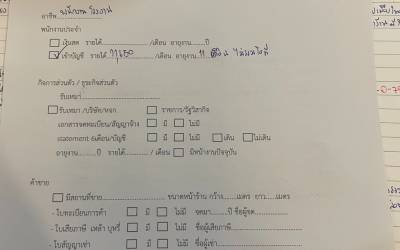 อาชีพ พนักงาน โรงงาน
พนักงานประจำ
เงินสด รายได้................/เดือน อายุงาน.......ปี
เข้าบัญชี รายได้ 11,650 /เดือน อายุงาน 11 เดือน ไม่มีสลิป
กิจการส่วนตัว / ธุรกิจส่วนตัว
รับเหมา................................
รับเหมา /บริษัท/หจก. ราชการ/รัฐวิสาหกิจ
เอกสารจดทะเบียน/สัญญาจ้าง มี ไม่มี
statement 6เดือน/บัญชี มี ไม่มี เดิน ไม่เดิน
อายุงาน.........ปี รายได้............/ เดือน มีหน้างานปัจจุบัน
ค้าขาย
มีสถานที่ขาย.......................... ขนาดหน้าร้าน กว้าง......เมตร ยาว......เมตร
- ใบทะเบียนการค้า มี ไม่มี จดมา.......ปี ชื่อผู้จด..................
- ใบเสียภาษี เหล้า บุหรี่ มี ไม่มี ชื่อผู้เสียภาษี..................
- ใบสัญญาเช่า มี ไม่มี ชื่อผู้เช่า..................